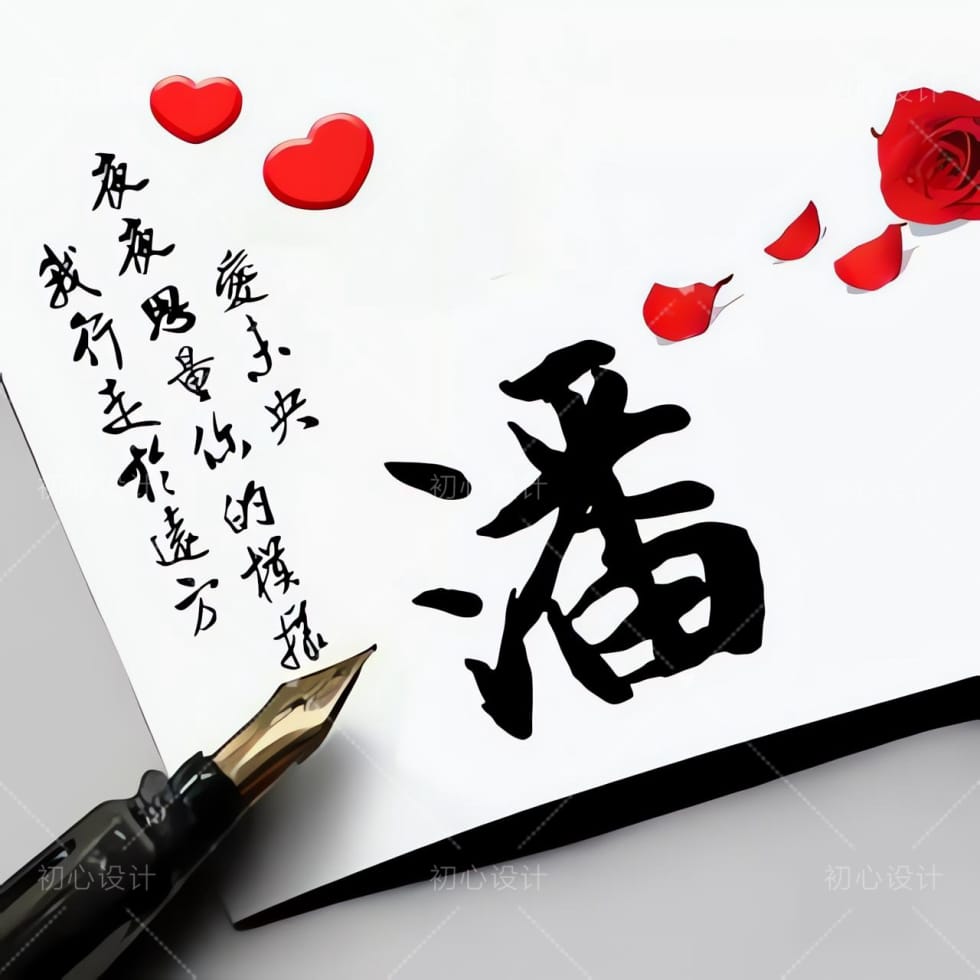 愛未央
夜夜思量你的模樣
我行走於遠方
潘
初心设计
初心设计
初心设计
初心设计
初心设计